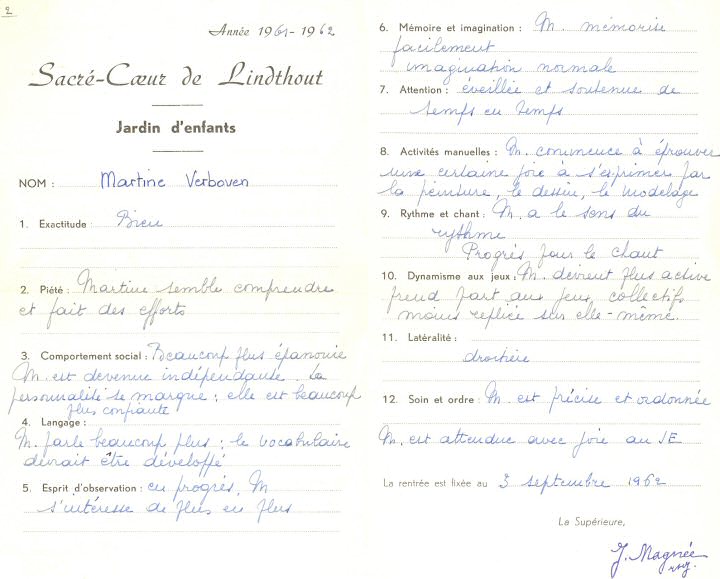 2
Année 1961-1962
Sacré-Cœur de Lindthout
Jardin d'enfants
NOM : Martine Verboven
1. Exactitude : Bien
2. Piété : Martine semble comprendre
et fait des efforts
3. Comportement social : Beaucoup plus épanouie
M. est devenue indépendante. La
personnalité se marque ; elle est beaucoup
plus confiante
4. Langage :
M. parle beaucoup plus ; le vocabulaire
devrait être développé
5. Esprit d'observation : en progrès, M
s'intéresse de plus en plus
6. Mémoire et imagination : M. mémorise
facilement
imagination normale
7. Attention : éveillée et soutenue de
temps en temps
8. Activités manuelles : M. commence à éprouver
une certaine joie à s'exprimer par
la peinture, le dessin, le modelage
9. Rythme et chant : M. a le sens du
rythme
Progrès pour le chant
10. Dynamisme aux jeux : M. devient plus active
prend part aux jeux collectifs
moins repliée sur elle-même.
11. Latéralité :
droitière
12. Soin et ordre : M. est précise et ordonnée
M. est attendue avec joie au JE
La rentrée est fixée au 3 septembre 1962
La Supérieure,
J. Magnée
rscj.